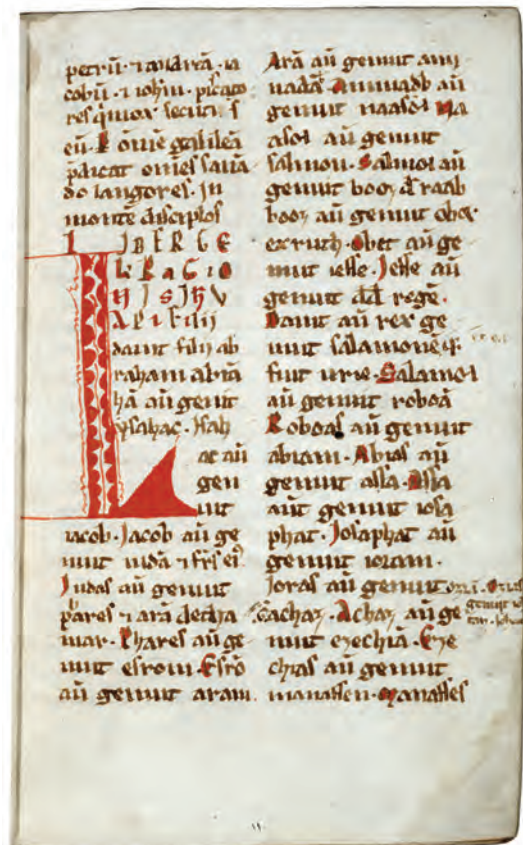 petrū· ⁊ andreā· ia
cobū· ⁊ iohīn· piscato
res
eū· omīe galileā
pdicat omēs sana
do langores· In
monte discip̄los
LIBER GE
NERACIO
NIS IHV
XPI filij
dauit filij ab
raham abrā
hā aū genuit
ysahac· Isah
ac aū
gen
uit
iacob· Jacob aū ge
nuit iudā ⁊ frēs eiꝰ
Judas aū genuit
phares ⁊ arā de tha
mar· Phares aū ge
nuit esrom· Esrō
aū genuit aram·
Arā aū genuit ami
nadā· Aminadb aū
genuit naasō Na
asō aū genuit
salmon· Salmō aū
genuit booz d̄ raab
booz aū genuit obet
ex ruth· Obet aū ge
nuit iesse· Jesse aū
genuit dd̄ regē·
Dauit aū rex ge
nuit salamonē q̄
fuit urie· Salamō
aū genuit roboā
Roboas aū genuit
abiam· Abias aū
genuit assa· Assa
aūt genuit iosa
phat· Josaphat aū
genuit ioram·
Joras aū genuit ozīa· Ozias
genuit io
tas· Achaz· Achaz aū ge
nuit ezechiā· Eze
chias aū genuit
manassen· Manasses